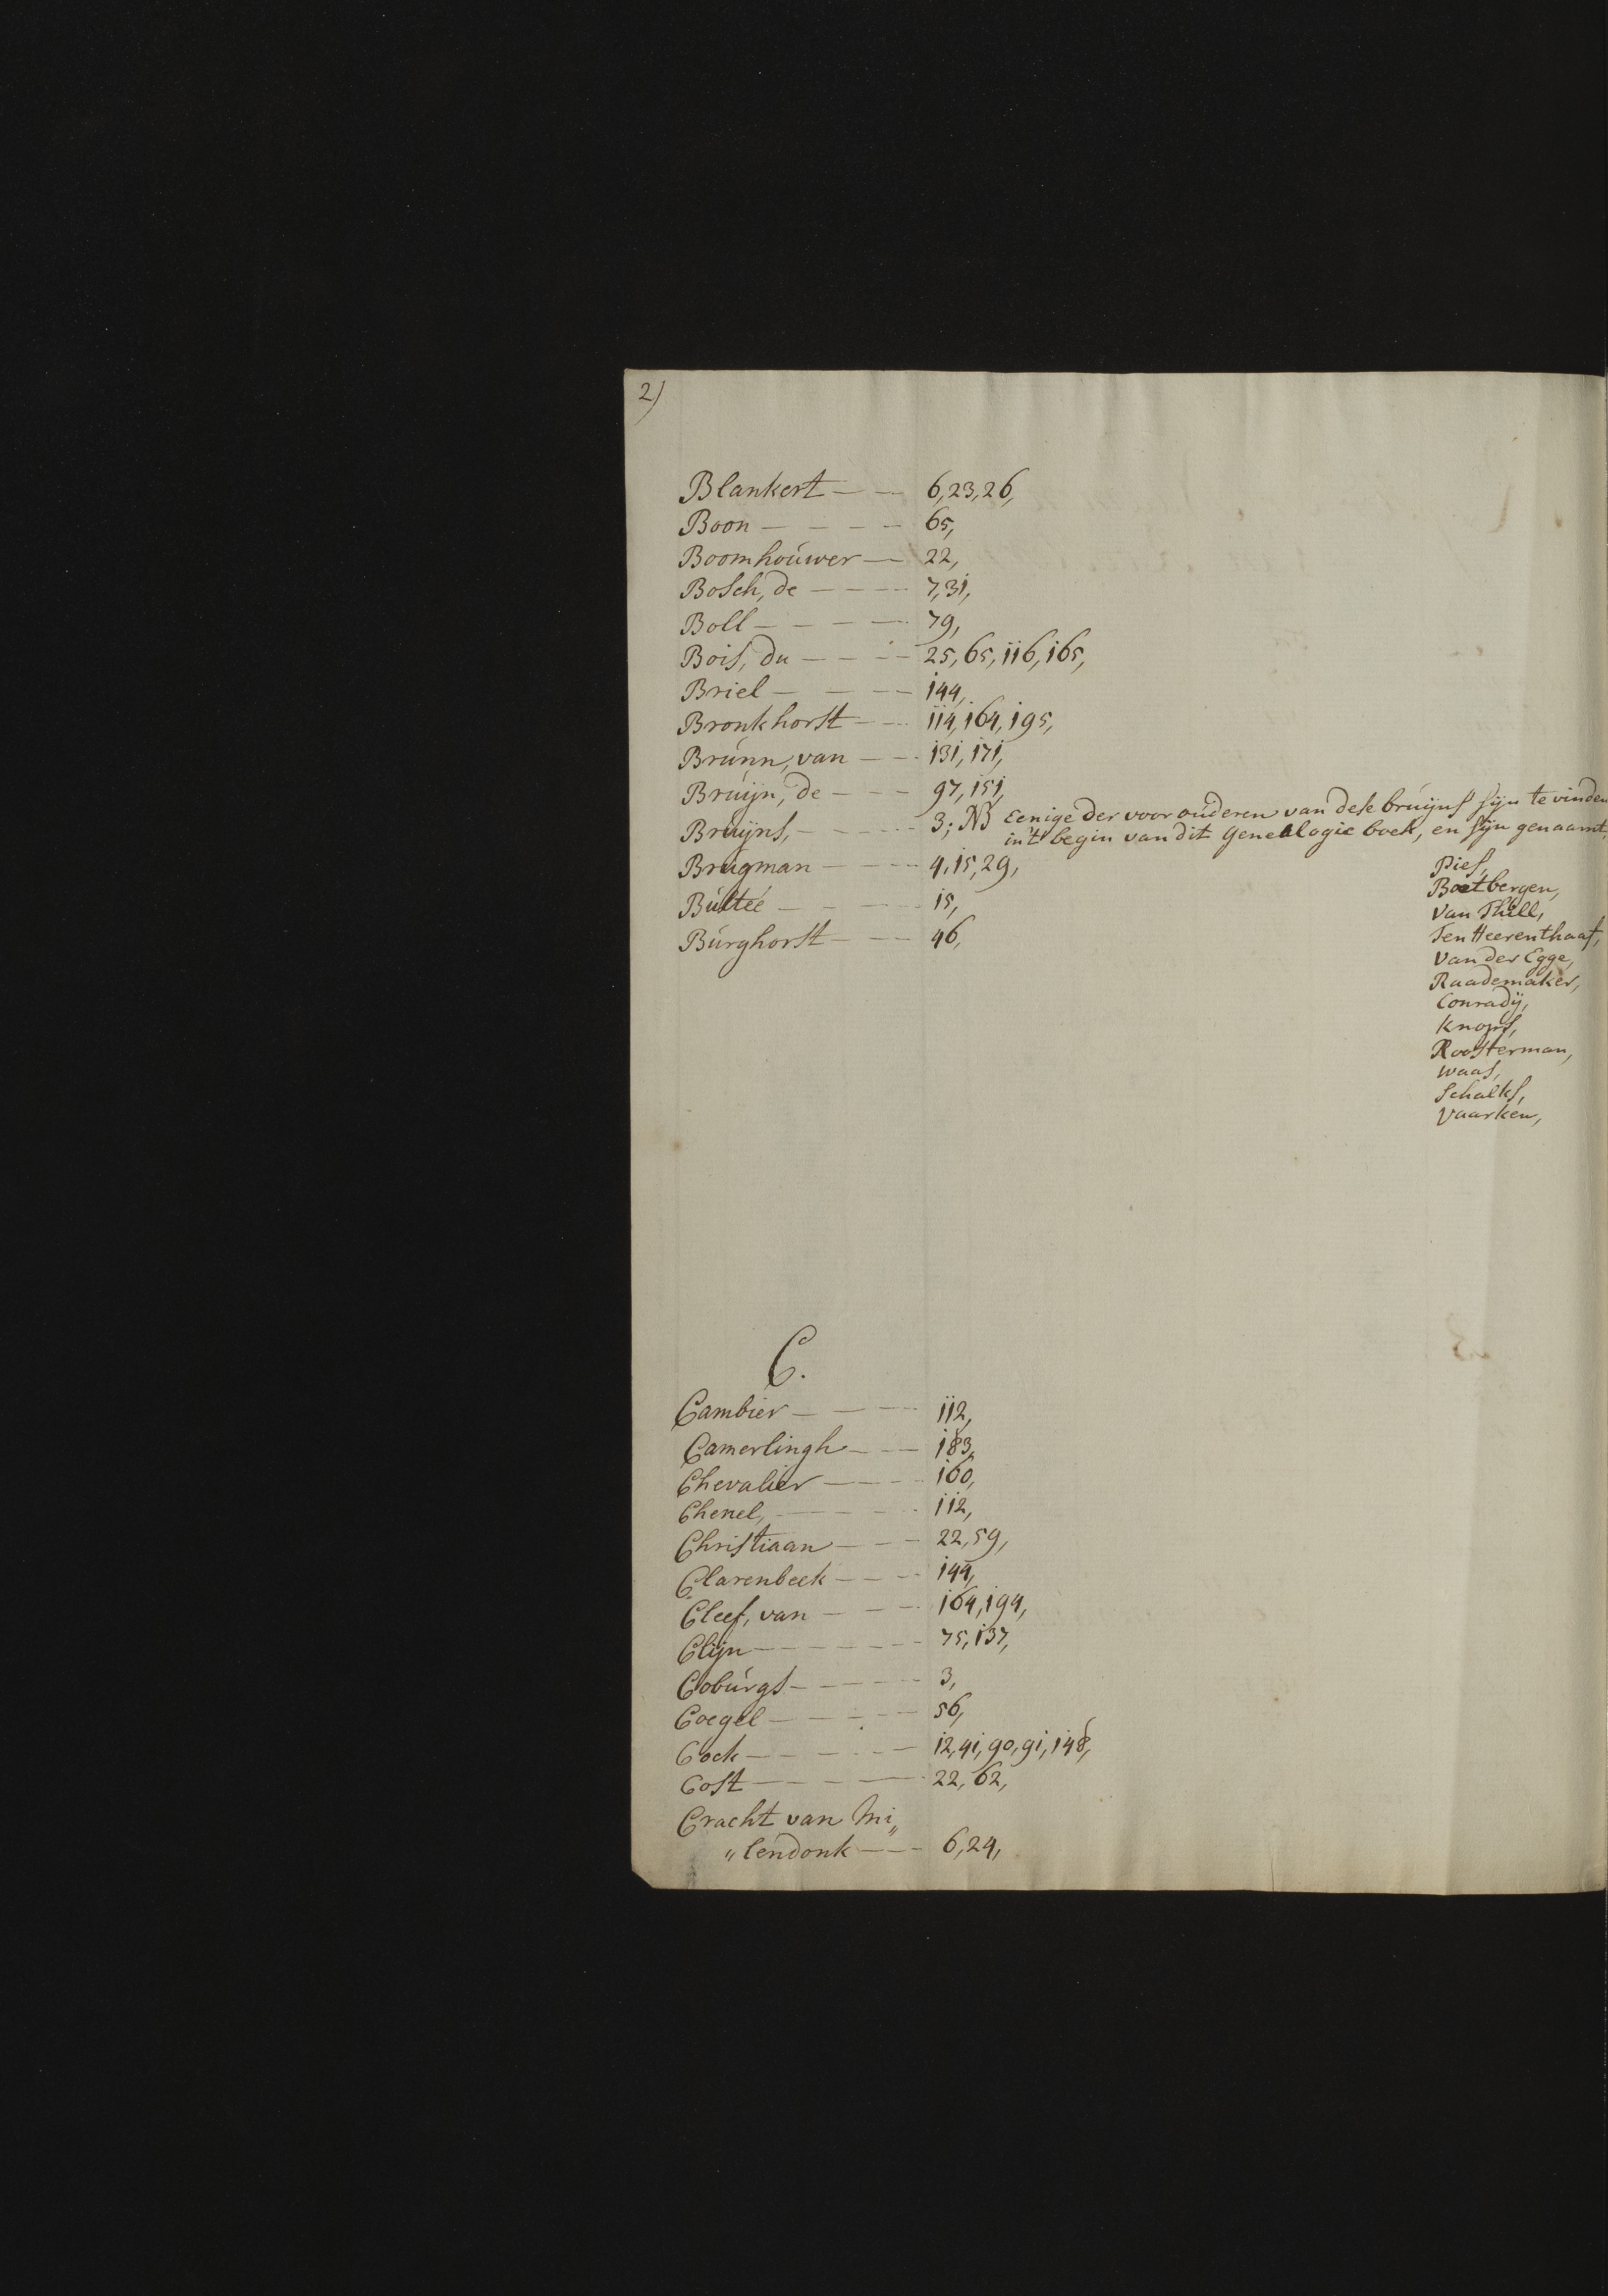 2)
Blankert — — 6, 23, 26,
Boon — — — — 65,
Boomhoúwer — 22,
Bosch, de — — — — 7, 31,
Boll — — — — 79,
Bois, du — — — — 25, 65, 116, 165,
Briel — — — — 144,
Bronkhorst — — 114, 164, 195,
Brúnn, van — — 131, 171,
Brúijn, de — — — 97, 151,
Brúijns, — — — — 3; NB Eenige der voor oúderen van dese brúijns sijn te vinden
in't begin van dit Genealogie boek, en sijn genaamt.
Brúgman — — — — 4, 15, 29,
Pies,
Bútteé — — — — 15,
Boetbergen,
van Thill,
Búrghorst — — — 46,
Ten Heerenthaaf,
van der Egge,
Raademaker,
Conradij,
Knops,
Roosterman,
waas,
Schalks,
Vaarken,
C.
Cambier — — — — 112,
Camerlingh — — — 183,
Chevalier — — — — 160,
Chenel, — — — — 112,
Christiaan — — — 22, 59,
Clarenbeek — — — 144,
Cleef, van — — — 164, 194,
Clijn — — — — — 75, 137,
Cobúrgs — — — — 3,
Coegel — — — — 56,
Cock — — — — — 12, 41, 90, 91, 148,
Cost — — — — — 22, 62,
Cracht van Mi„
„lendonk — — — 6, 24,